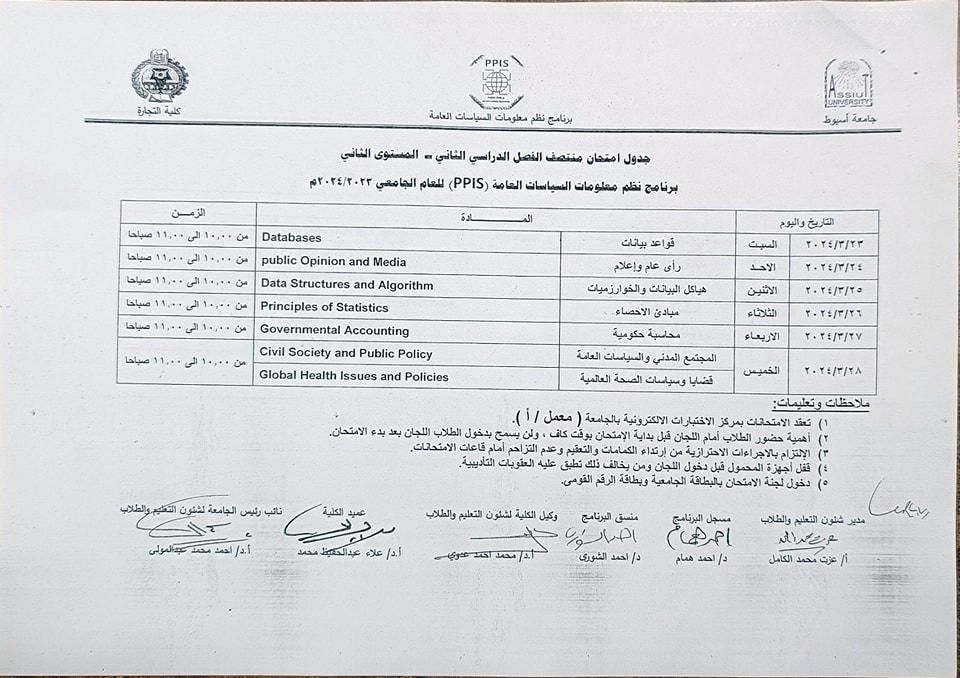 جامعة أسيوط
ASSIUT
UNIVERSITY
PPIS
برنامج نظم معلومات السياسات العامة
كلية التجارة
جدول امتحان منتصف الفصل الدراسي الثاني - المستوى الثاني
برنامج نظم معلومات السياسات العامة (PPIS) للعام الجامعي ٢٠٢٤/٢٠٢٣م
التاريخ واليوم المــــــــادة الزمــن
٢٠٢٤/٣/٢٣ السبت قواعد بيانات Databases من ١٠,٠٠ الى ١١,٠٠ صباحا
٢٠٢٤/٣/٢٤ الاحد رأى عام وإعلام public Opinion and Media من ١٠,٠٠ الى ١١,٠٠ صباحا
٢٠٢٤/٣/٢٥ الاثنين هياكل البيانات والخوارزميات Data Structures and Algorithm من ١٠,٠٠ الى ١١,٠٠ صباحا
٢٠٢٤/٣/٢٦ الثلاثاء مبادئ الاحصاء Principles of Statistics من ١٠,٠٠ الى ١١,٠٠ صباحا
٢٠٢٤/٣/٢٧ الاربعاء محاسبة حكومية Governmental Accounting من ١٠,٠٠ الى ١١,٠٠ صباحا
٢٠٢٤/٣/٢٨ الخميس المجتمع المدني والسياسات العامة Civil Society and Public Policy من ١٠,٠٠ الى ١١,٠٠ صباحا
قضايا وسياسات الصحة العالمية Global Health Issues and Policies
ملاحظات وتعليمات:
١) تعقد الامتحانات بمركز الاختبارات الالكترونية بالجامعة ( معمل / أ ).
٢) أهمية حضور الطلاب أمام اللجان قبل بداية الإمتحان بوقت كاف ، ولن يسمح بدخول الطلاب اللجان بعد بدء الامتحان.
٣) الإلتزام بالاجراءات الاحترازية من إرتداء الكمامات والتعقيم وعدم التزاحم أمام قاعات الامتحانات.
٤) قفل أجهزة المحمول قبل دخول اللجان ومن يخالف ذلك تطبق عليه العقوبات التأديبية.
٥) دخول لجنة الامتحان بالبطاقة الجامعية وبطاقة الرقم القومى.
مدير شئون التعليم والطلاب مسجل البرنامج منسق البرنامج وكيل الكلية لشئون التعليم والطلاب عميد الكلية نائب رئيس الجامعة لشئون التعليم والطلاب
أ/ عزت محمد الكامل د/ احمد همام د/ احمد الشورى أ.د/ محمد احمد عدوي أ.د/ علاء عبدالحفيظ محمد أ.د/ احمد محمد عبدالمولى